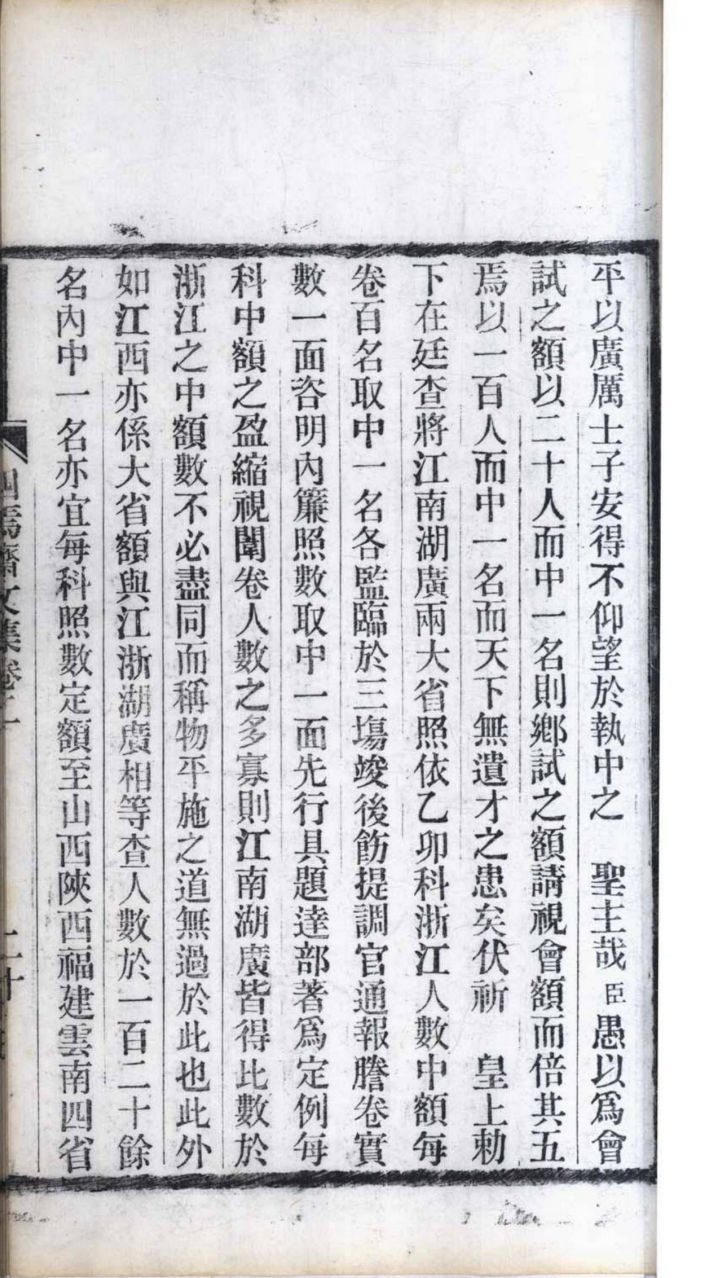 平以廣厲士子安得不仰望於執中之　聖主哉臣愚以爲會
試之額以二十人而中一名則鄉試之額請視會額而倍其五
焉以一百人而中一名而天下無遺才之患矣伏祈　皇上勅
下在廷查將江南湖廣兩大省照依乙卯科浙江人數中額每
卷百名取中一名各監臨於三塲竣後飭提調官通報謄卷實
數一面咨明內簾照數取中一面先行具題達部著爲定例每
科中額之盈縮視闈卷人數之多寡則江南湖廣皆得比數於
浙江之中額數不必盡同而稱物平施之道無過於此也此外
如江西亦係大省額與江浙湖廣相等查人數於一百二十餘
名內中一名亦宜每科照數定額至山西陝西福建雲南四省
焉齋文集卷二